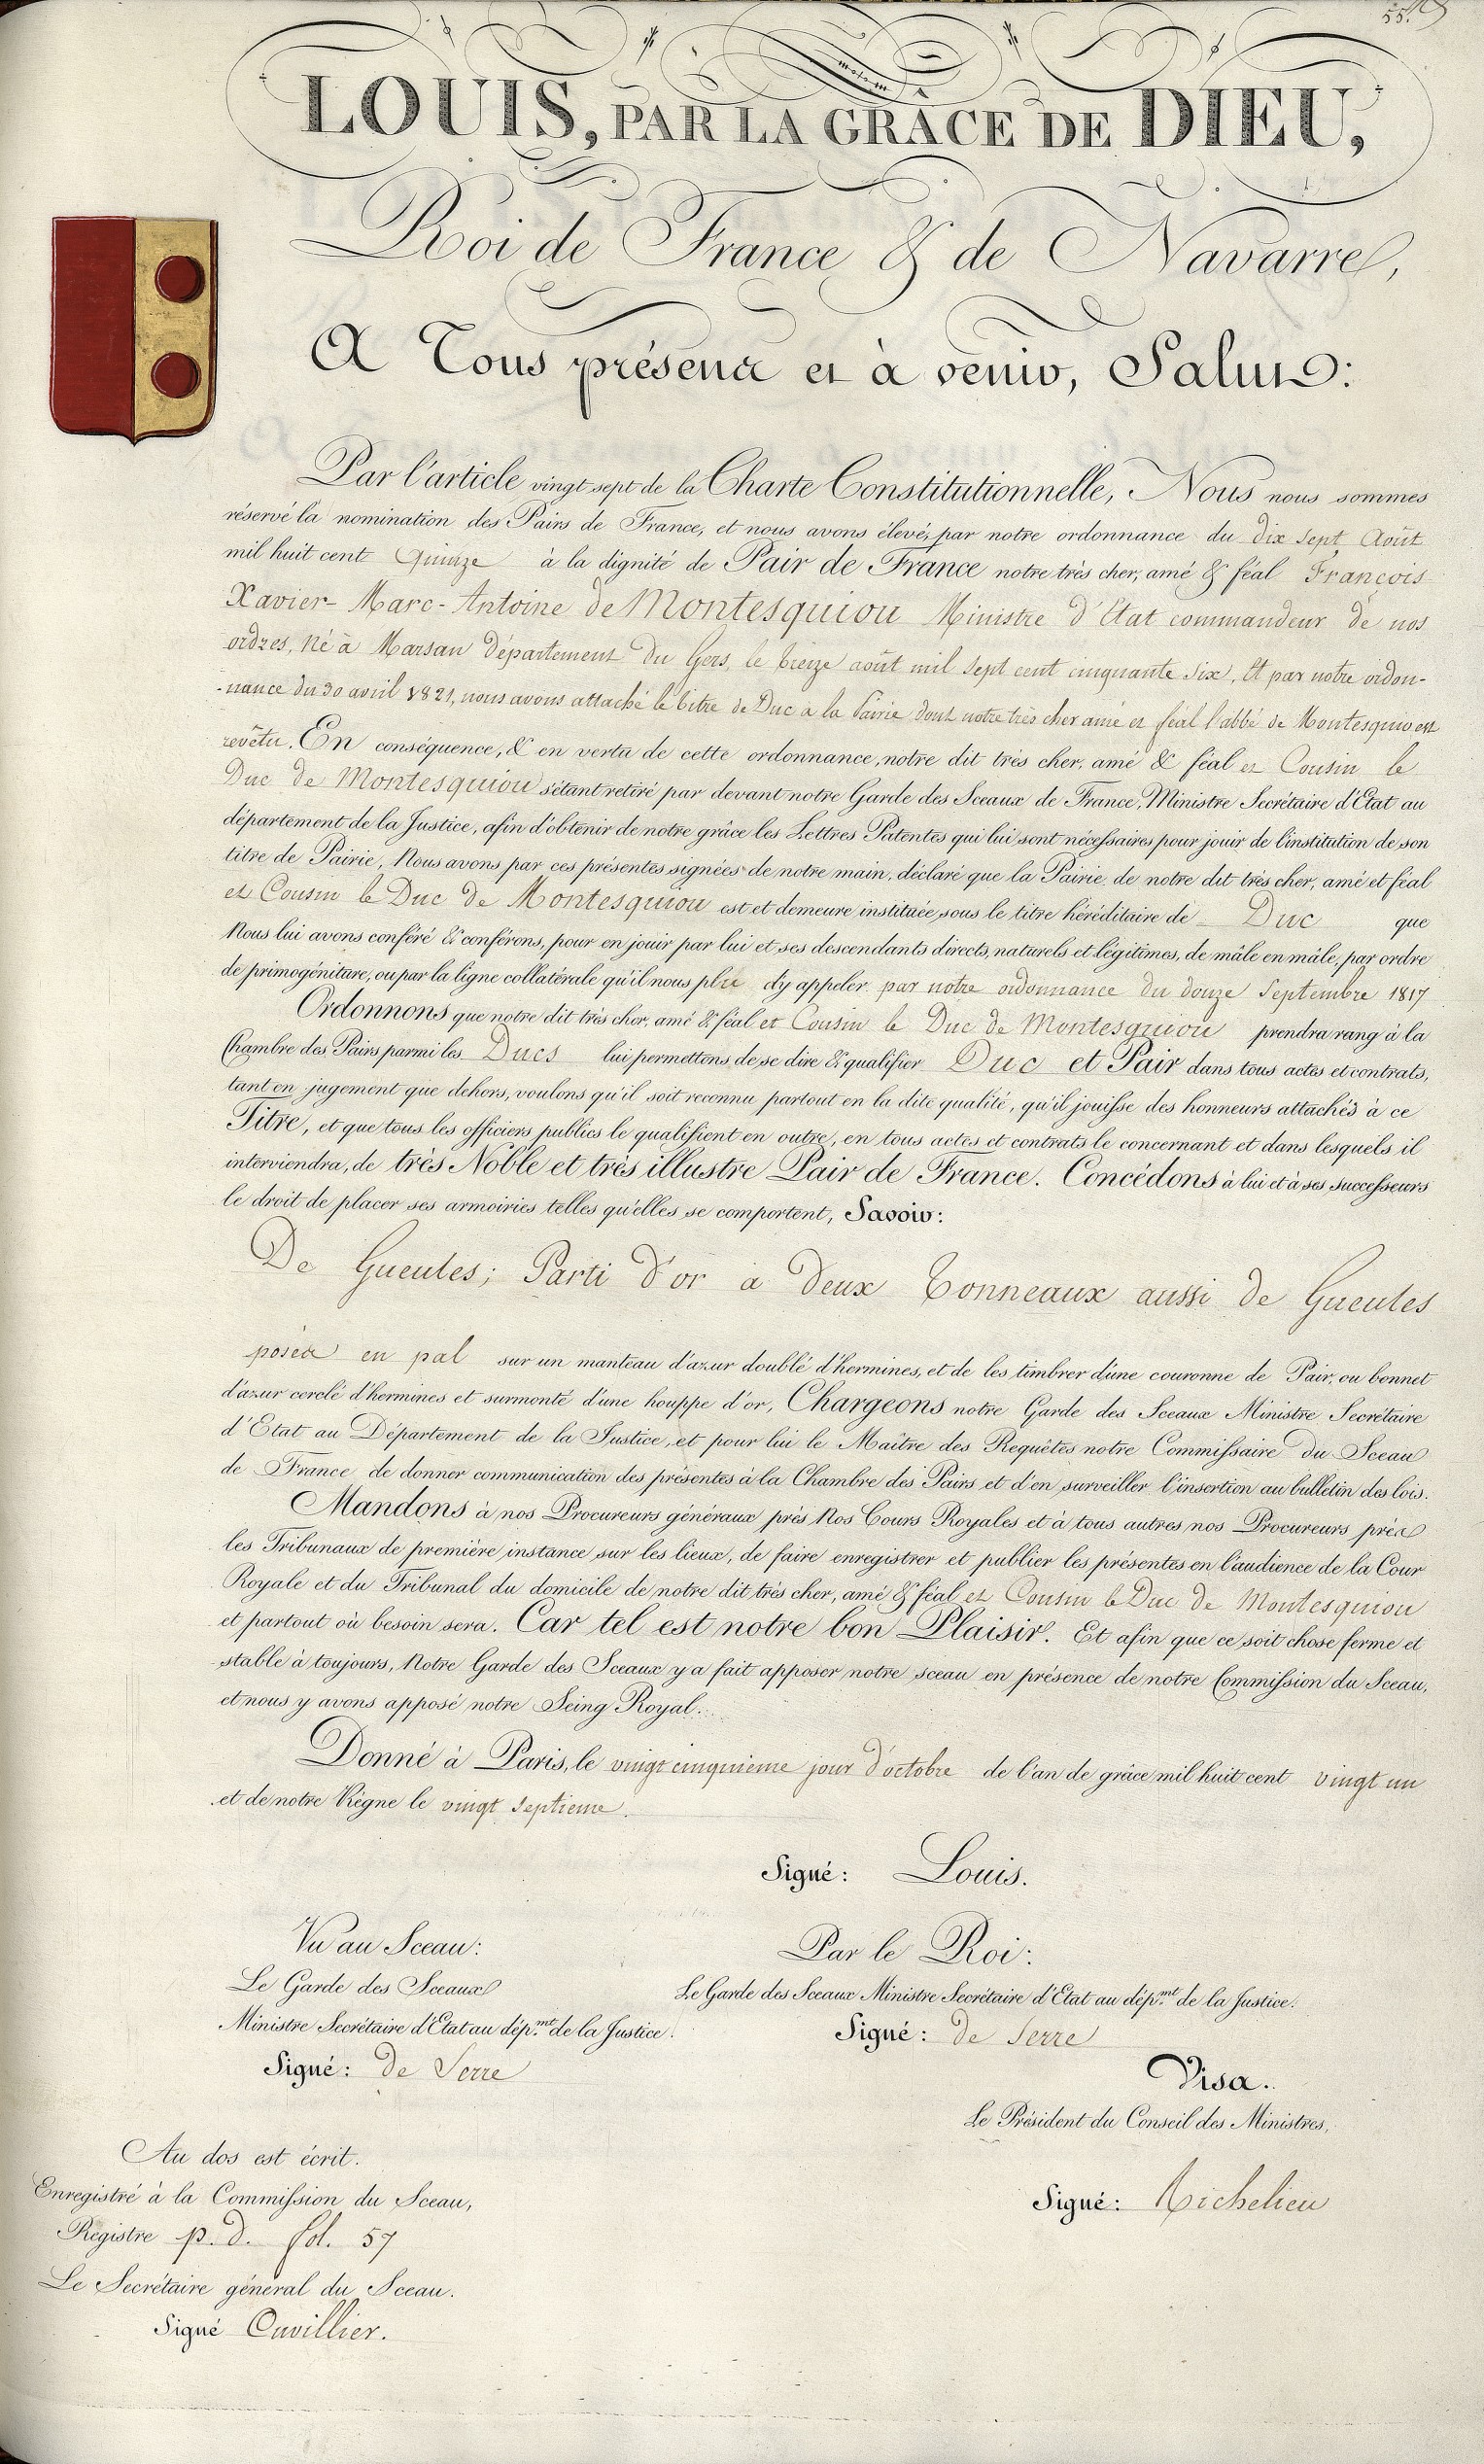 55.
LOUIS, PAR LA GRÂCE DE DIEU,
Roi de France & de Navarre,
A Tous présens et à venir, Salut:
Par l'article vingt sept de la Charte Constitutionnelle, Nous nous sommes
réservé la nomination des Pairs de France, et nous avons élevé, par notre ordonnance du dix sept Août
mil huit cent Quinze à la dignité de Pair de France notre très cher, amé & féal François
Xavier-Marc-Antoine de Montesquiou Ministre d'Etat commandeur de nos
ordres, Né à Marsan Département du Gers, le treize août mil sept cent cinquante six, Et par notre ordon-
-nance du 30 avril 1821, nous avons attaché le titre de Duc à la Pairie dont notre très cher amé et féal l'abbé de Montesquiou est
revêtu. En conséquence, & en vertu de cette ordonnance, notre dit très cher, amé & féal et Cousin le
Duc de Montesquiou s'étant retiré par devant notre Garde des Sceaux de France, Ministre Secrétaire d'Etat au
département de la Justice, afin d'obtenir de notre grâce les Lettres Patentes qui lui sont nécessaires pour jouir de l'institution de son
titre de Pairie, Nous avons par ces présentes signées de notre main, déclaré que la Pairie de notre dit très cher, amé et féal
et Cousin le Duc de Montesquiou est et demeure instituée sous le titre héréditaire de Duc que
Nous lui avons conféré & conférons, pour en jouir par lui et ses descendants directs, naturels et légitimes, de mâle en mâle, par ordre
de primogéniture, ou par la ligne collatérale qu'il nous plu d'y appeler par notre ordonnance du douze Septembre 1817
Ordonnons que notre dit très cher, amé & féal et Cousin le Duc de Montesquiou prendra rang à la
Chambre des Pairs parmi les Ducs lui permettons de se dire & qualifier Duc et Pair dans tous actes et contrats,
tant en jugement que dehors, voulons qu'il soit reconnu partout en la dite qualité, qu'il jouisse des honneurs attachés à ce
Titre, et que tous les officiers publics le qualifient en outre, en tous actes et contrats le concernant et dans lesquels il
interviendra, de très Noble et très illustre Pair de France. Concédons à lui et à ses successeurs
le droit de placer ses armoiries telles qu'elles se comportent, Savoir:
De Gueules; Parti d'or à deux Tonneaux aussi de Gueules
posés en pal sur un manteau d'azur doublé d'hermines, et de les timbrer d'une couronne de Pair, ou bonnet
d'azur cerclé d'hermines et surmonté d'une houppe d'or, Chargeons notre Garde des Sceaux Ministre Secrétaire
d'Etat au Département de la Justice, et pour lui le Maître des Requêtes notre Commissaire du Sceau
de France de donner communication des présentes à la Chambre des Pairs et d'en surveiller l'insertion au bulletin des lois.
Mandons à nos Procureurs généraux près Nos Cours Royales et à tous autres nos Procureurs près
les Tribunaux de première instance sur les lieux, de faire enregistrer et publier les présentes en l'audience de la Cour
Royale et du Tribunal du domicile de notre dit très cher, amé & féal et Cousin le Duc de Montesquiou
et partout où besoin sera. Car tel est notre bon Plaisir. Et afin que ce soit chose ferme et
stable à toujours, Notre Garde des Sceaux y a fait apposer notre sceau en présence de notre Commission du Sceau,
et nous y avons apposé notre Seing Royal.
Donné à Paris, le vingt cinquieme jour d'octobre de l'an de grâce mil huit cent vingt un
et de notre Règne le vingt septieme.
Signé: Louis.
Vu au Sceau:
Le Garde des Sceaux
Ministre Secrétaire d'Etat au dép.mt de la Justice.
Signé: de Serre
Par le Roi:
Le Garde des Sceaux Ministre Secrétaire d'Etat au dép.mt de la Justice.
Signé: de Serre
Visa.
Le Président du Conseil des Ministres,
Signé: Richelieu
Au dos est écrit.
Enregistré à la Commission du Sceau,
Registre p. d. fol. 57
Le Secrétaire général du Sceau.
Signé Cuvillier.